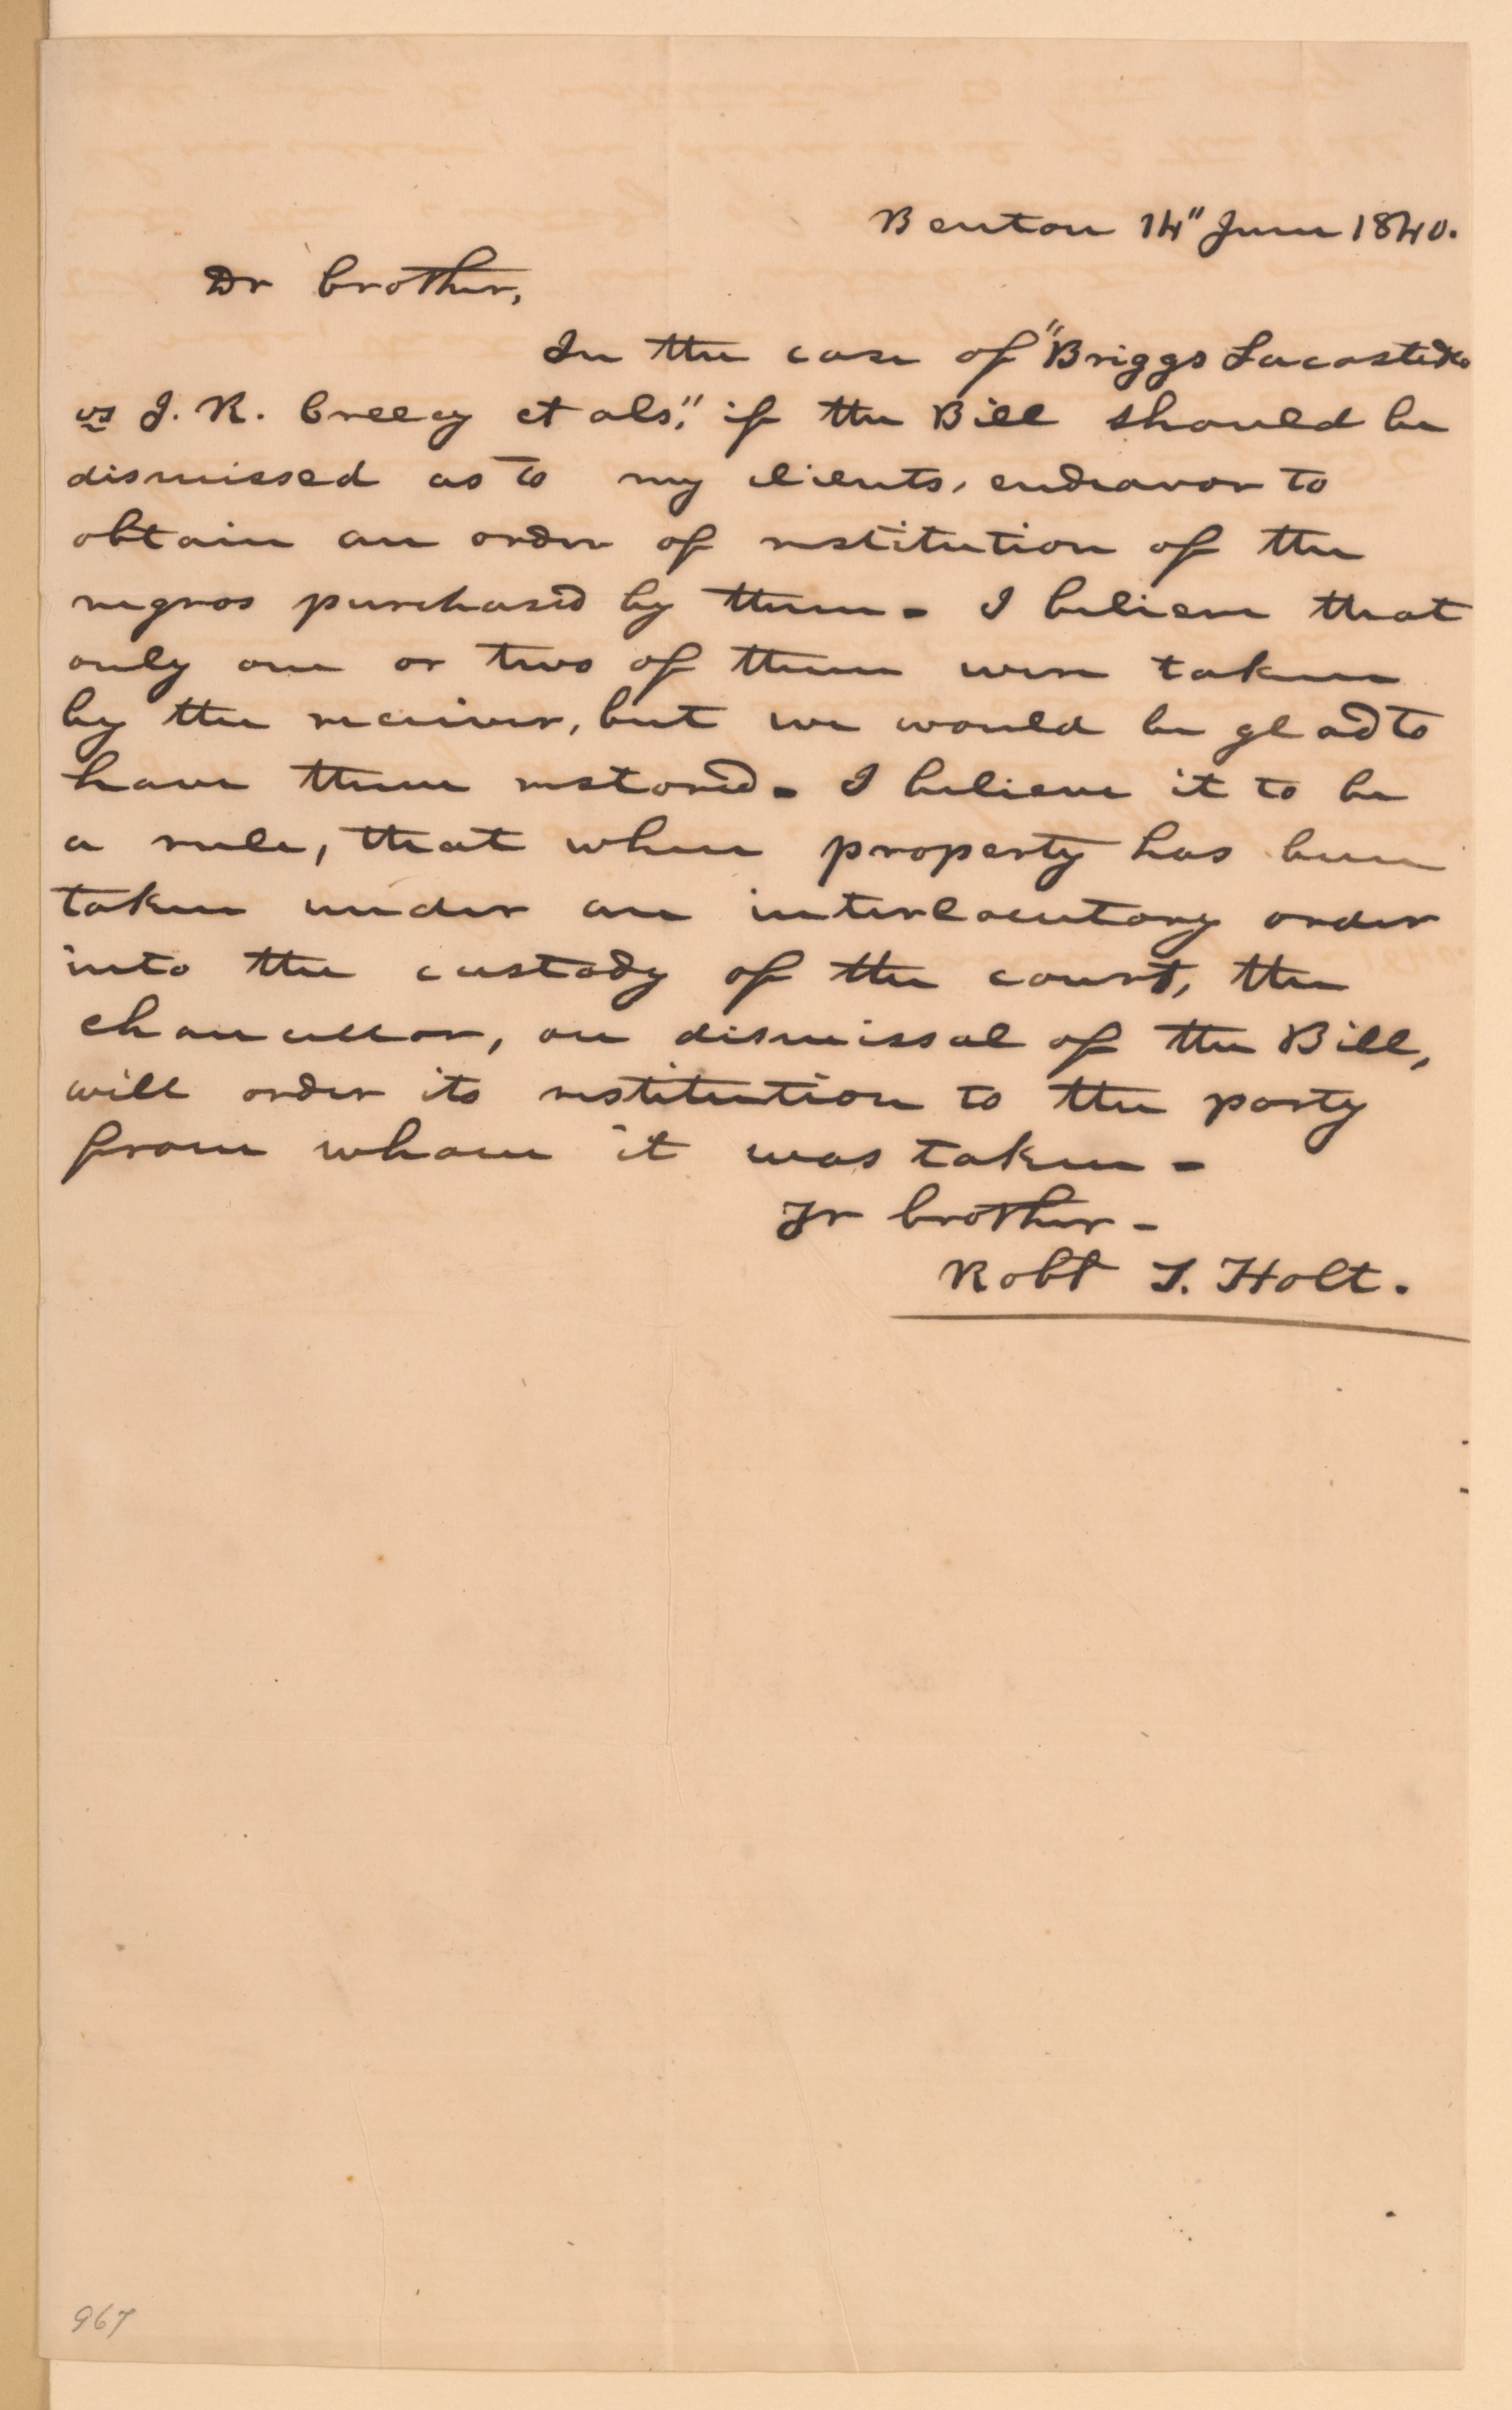 Benton 14" June 1840.
Dr brother,
In the case of "Briggs Lacoste & Co
vs J. R. Creecy et als", if the Bill should be
dismissed as to my clients, endeavor to
obtain an order of restitution of the
negros purchased by them - I believe that
only one or two of them were taken
by the receiver, but we would be glad to
have them restored - I believe it to be
a rule, that when property has been
taken under an interlocutory order
into the custody of the court, the
chancellor, on dismissal of the Bill,
will order its restitution to the party
from whom it was taken -
Yr brother -
Robt S. Holt.
967